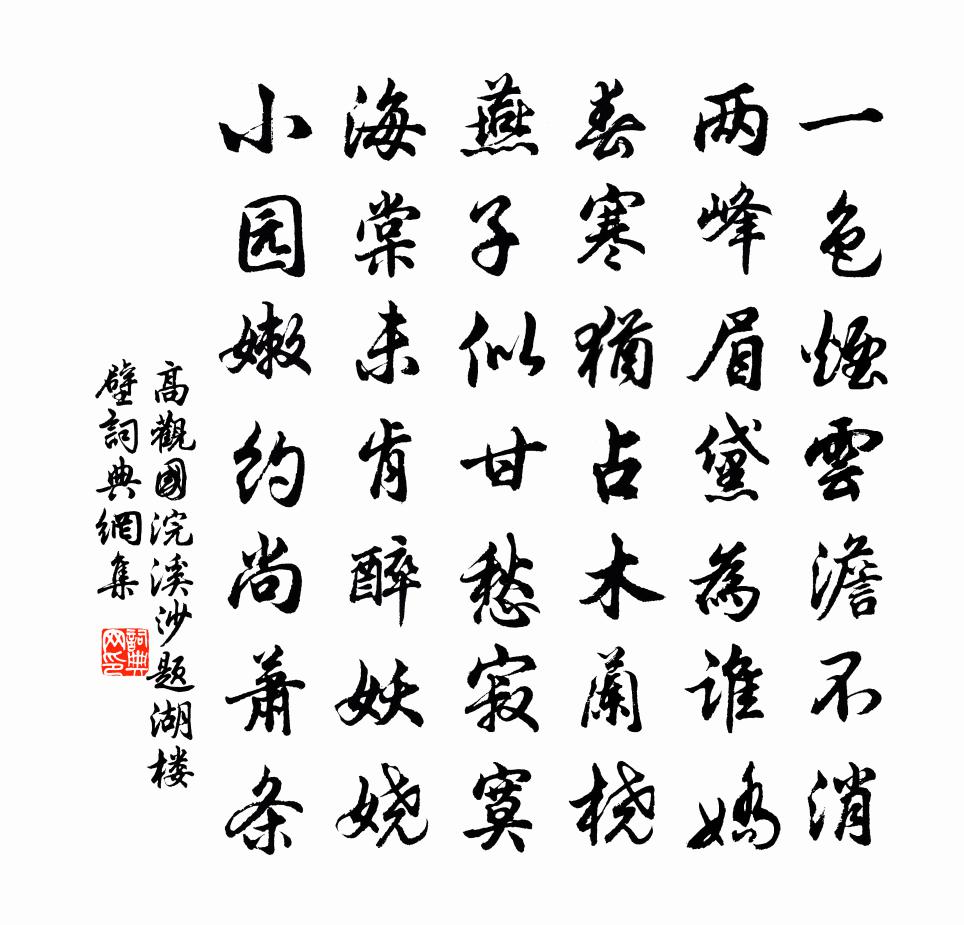 一色煙雲澹不消
两峰眉黛為谁嬌
春寒猶占木蘭桡
燕子似甘愁寂寞
海棠未肯醉妖娆
小园嫩约尚萧条
高觀國浣溪沙题湖楼
壁詞典網集
詞典网印